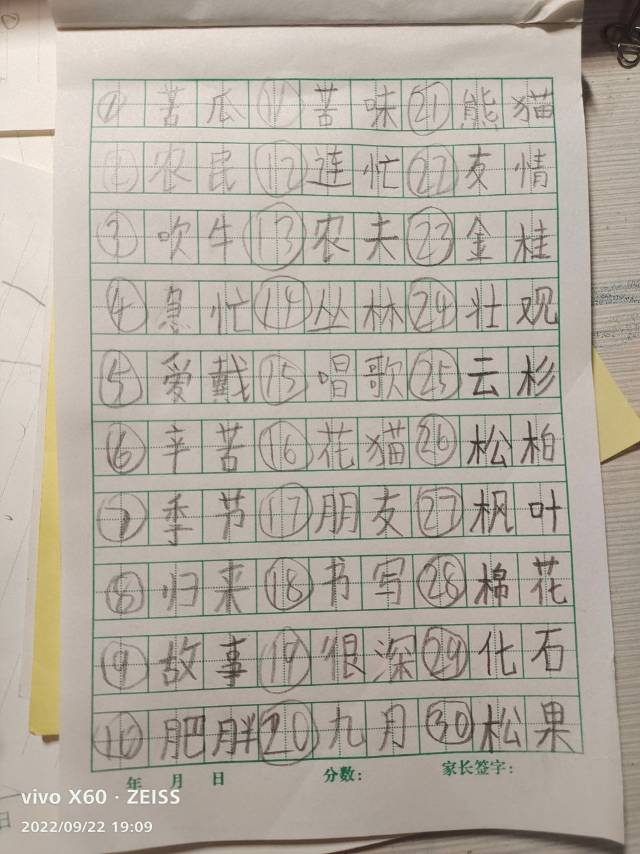 ① 苦瓜 ⑪ 苦味 ㉑ 熊猫
② 农民 ⑫ 连忙 ㉒ 友情
③ 吹牛 ⑬ 农夫 ㉓ 金桂
④ 急忙 ⑭ 丛林 ㉔ 壮观
⑤ 爱戴 ⑮ 唱歌 ㉕ 云杉
⑥ 辛苦 ⑯ 花猫 ㉖ 松柏
⑦ 季节 ⑰ 朋友 ㉗ 枫叶
⑧ 归来 ⑱ 书写 ㉘ 棉花
⑨ 故事 ⑲ 很深 ㉙ 化石
⑩ 肥胖 ⑳ 九月 ㉚ 松果
年 月 日 分数： 家长签字：
vivo X60 · ZEISS
2022/09/22 19:09